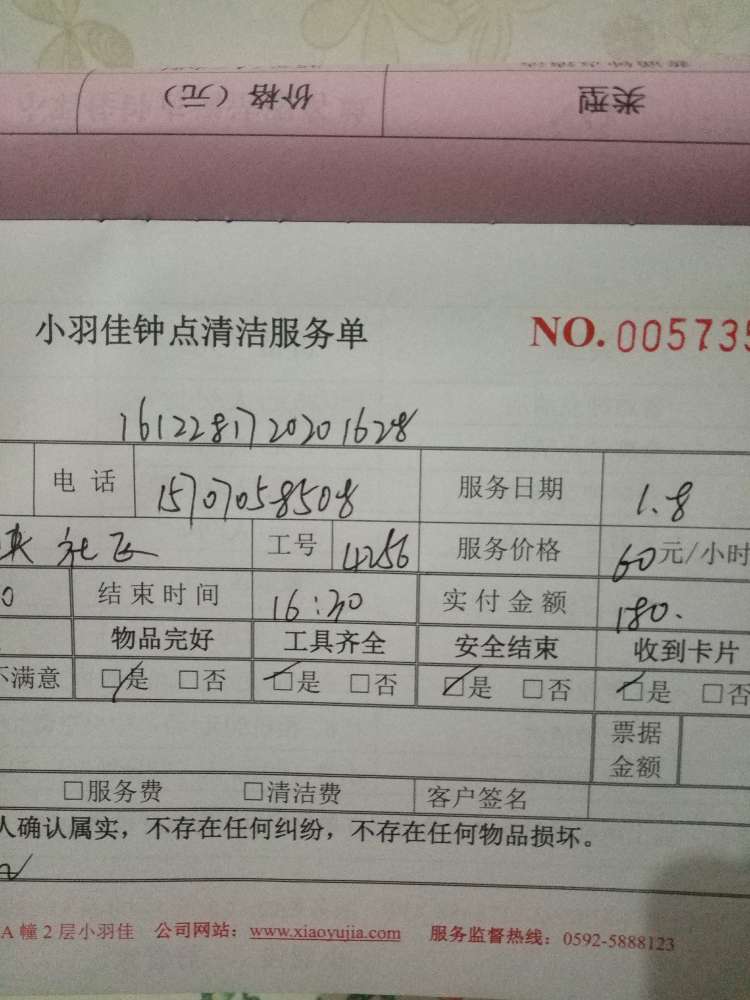 类型 价格（元）
小羽佳钟点清洁服务单 NO. 005735
1612281720201628
电话 15707058508 服务日期 1.8
工号 4256 服务价格 60元/小时
0 结束时间 16:30 实付金额 180.
物品完好 工具齐全 安全结束 收到卡片
不满意 □是 □否 □是 □否 □是 □否 □是 □否
票据
金额
□服务费 □清洁费 客户签名
人确认属实，不存在任何纠纷，不存在任何物品损坏。
A幢2层小羽佳 公司网站：www.xiaoyujia.com 服务监督热线：0592-5888123